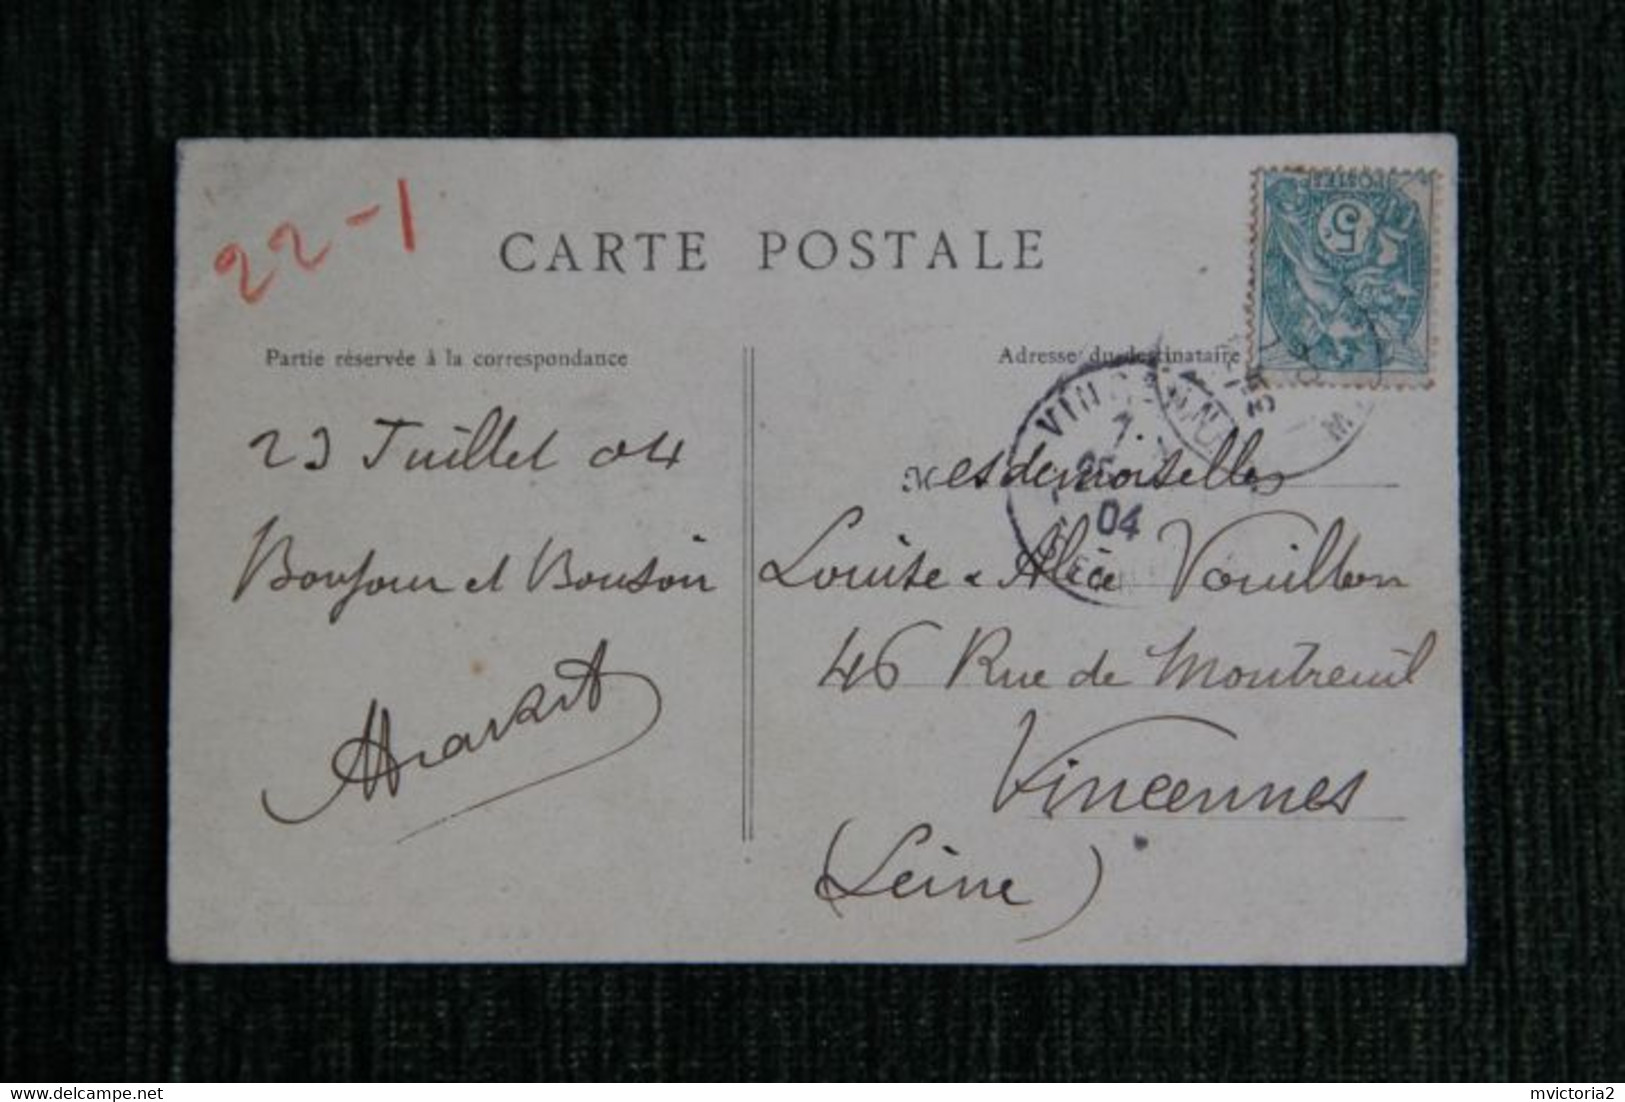 22-1
CARTE POSTALE
POSTES
5c
Partie réservée à la correspondance
Adresse du destinataire
23 Juillet 04
Bonjour et Bonsoir
Mesdemoiselles
Louise & Alice Vouillon
46 Rue de Montreuil
Vincennes
(Seine)
04
mvictoria2